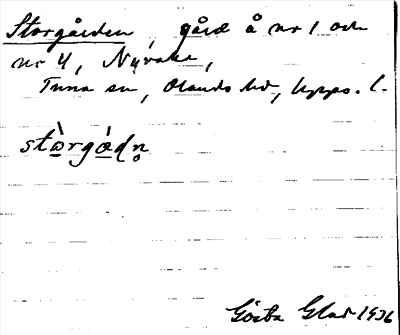 Storgården, gård å nr 1 och
nr 4, Nyvalla,
Tuna sn, Olands hd, Upps. l.
stòrgådn̥
Gösta Glad 1936